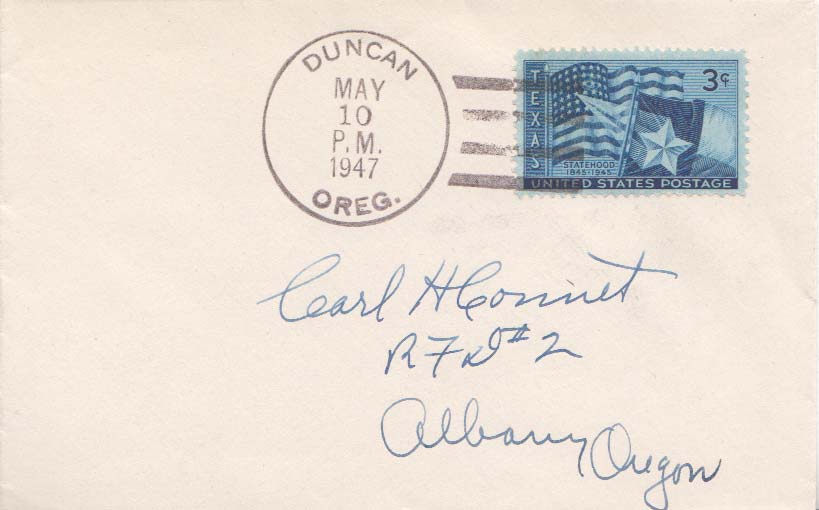 DUNCAN
MAY
10
P.M.
1947
OREG.
TEXAS
3¢
STATEHOOD
1845-1945
UNITED STATES POSTAGE
Carl H Connet
RFD #2
Albany Oregon